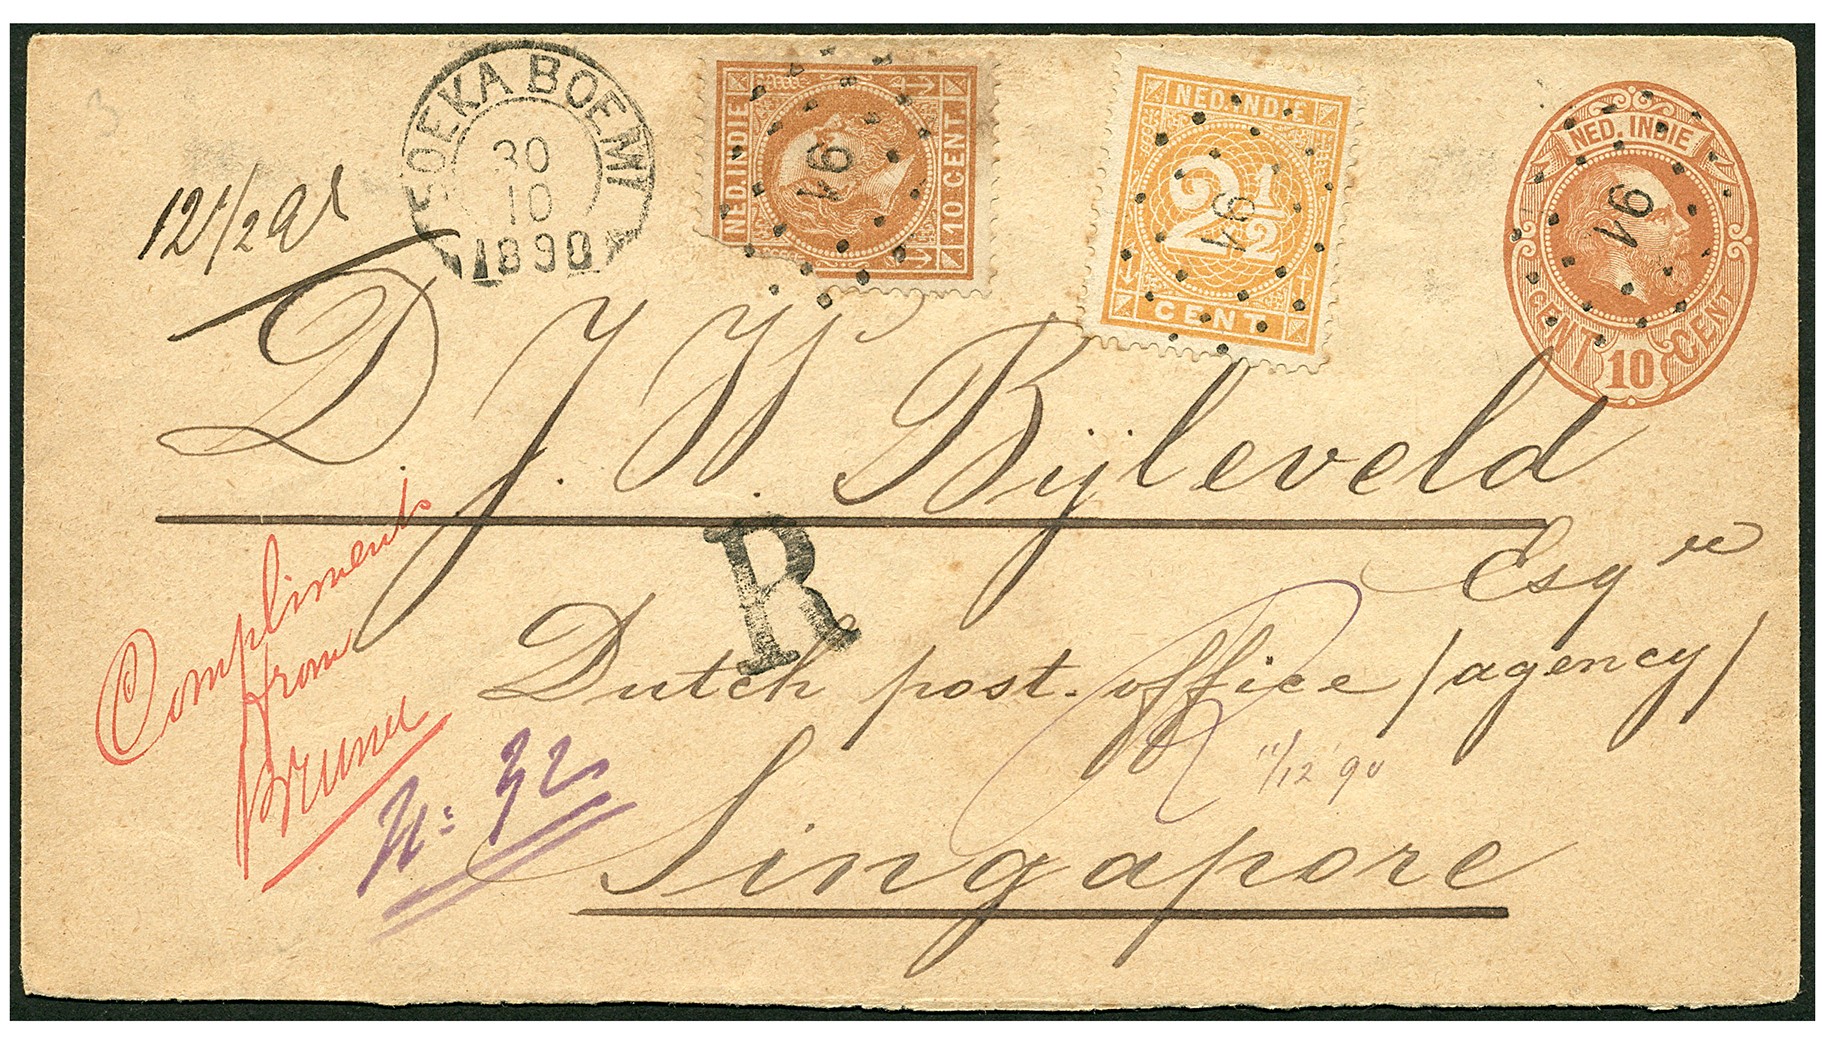 SOEKA BOEMI
30
10
1890
NED. INDIE
10 CENT.
91
NED. INDIE
2 1/2
CENT
94
NED. INDIE
CENT 10 CENT
91
12 1/2
D J. W. Bijleveld
Esqre
R
Dutch post-office /agency/
Singapore
Compliments
from
Bruner
No: 32
11/12 90